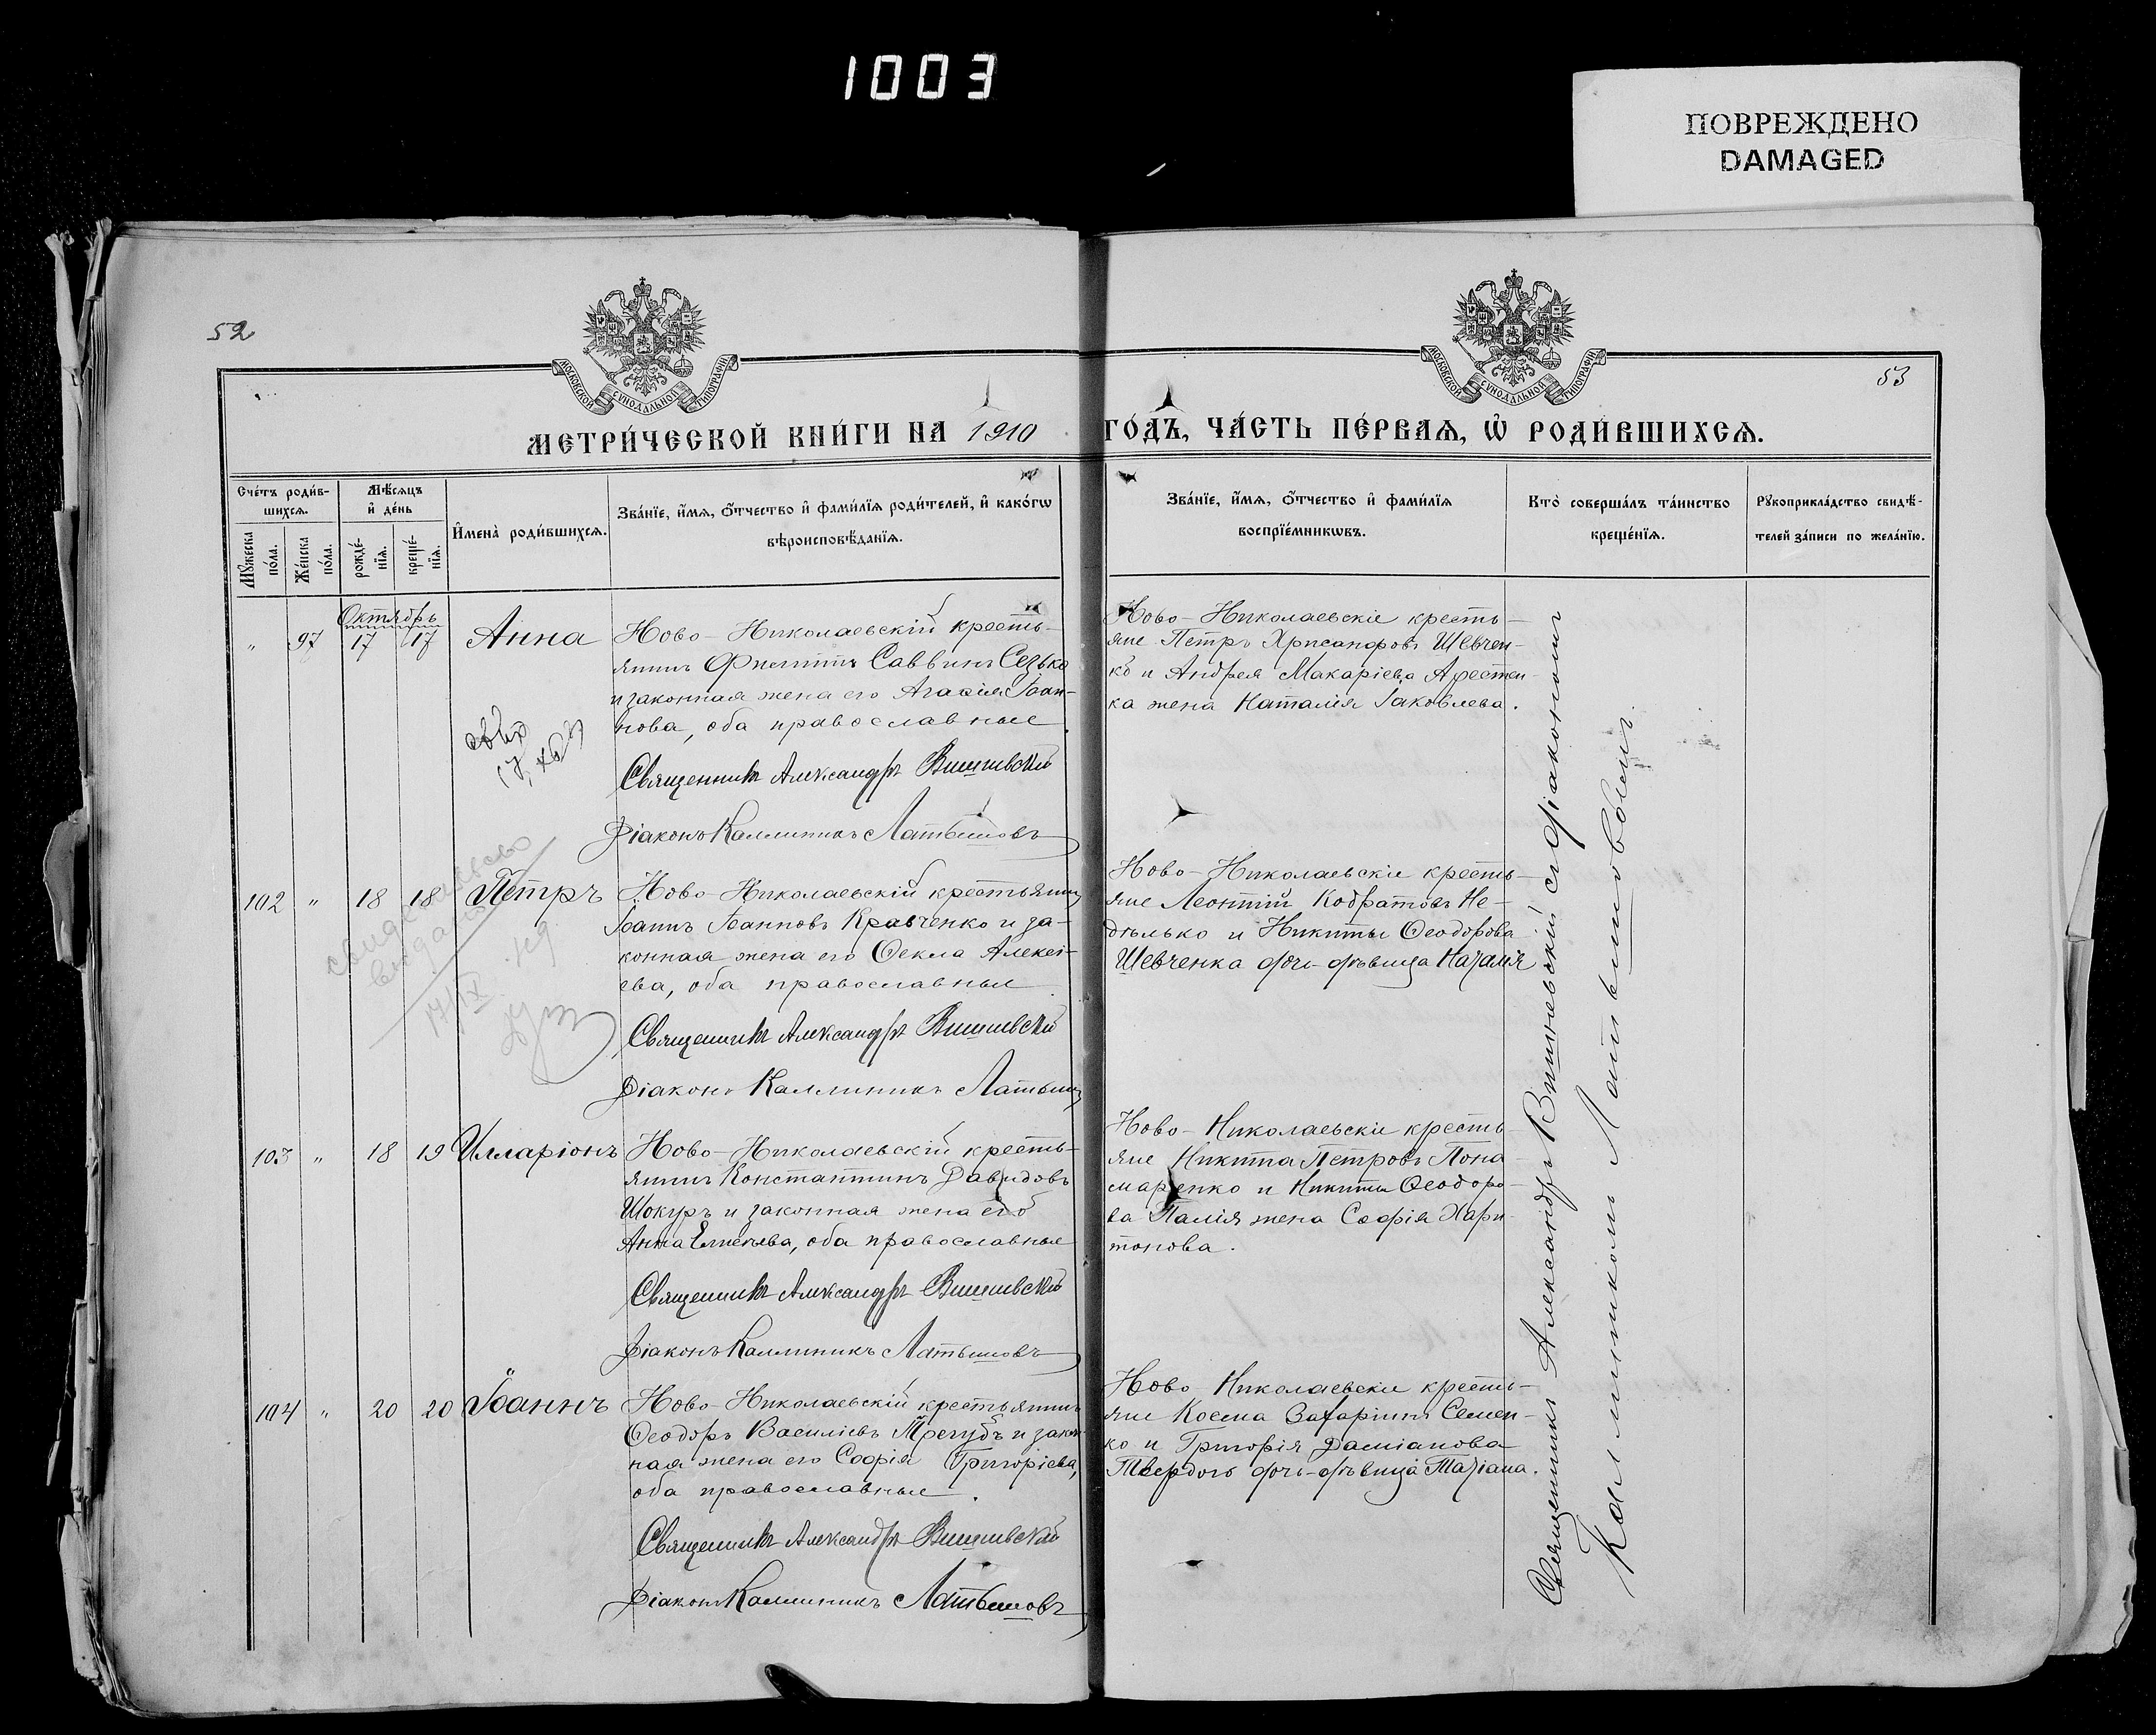 1003
ПОВРЕЖДЕНО
DAMAGED
52
МОСКОВСКОЙ СѴНОДАЛЬНОЙ ТИПОГРАФІИ
МОСКОВСКОЙ СѴНОДАЛЬНОЙ ТИПОГРАФІИ
53
МЕТРИ́ЧЕСКОЙ КНИ́ГИ НА 1910 ГО́ДЪ, ЧА́СТЬ ПЕ́РВАЯ, Ѡ҆ РОДИ́ВШИХСЯ.
Сче́тъ роди́в-
шихся.
Мѣ́сяцъ
и҆ де́нь
Мꙋ́жеска
по́ла.
Же́нска
по́ла.
рожде́-
нїя.
креще́-
нїя.
И҆мена̀ роди́вшихся.
Зва́нїе, и҆́мя, ѻ҆́тчество и҆ фами́лїя роди́телей, и҆ како́гѡ
вѣроисповѣ́данїя.
Зва́нїе, и҆́мя, ѻ҆́тчество и҆ фами́лїя
воспрїе́мникѡвъ.
Кто̀ соверша́лъ та́инство
креще́нїя.
Рꙋкоприкла́дство свидѣ́-
телей за́писи по жела́нїю.
Октябрь
" 97 17 17 Анна
Ново-Николаевскій кресть-
янинъ Филиппъ Саввинъ Сезько
и законная жена его Агафія Іоан-
нова, оба православные
Священникъ Александръ Вишневскій
Діаконъ Каллиникъ Латышовъ
Ново-Николаевскіе кресть-
яне Петръ Хрисанфовъ Шевчен-
ко и Андрея Макаріева
жена Наталія Іаковлева.
102 " 18 18 Петръ
Ново-Николаевскій крестьянинъ
Іоаннъ Іоанновъ Кравченко и за-
конная жена его Ѳекла Алексі-
ева, оба православные
Священникъ Александръ Вишневскій
Діаконъ Каллиникъ Латышовъ
свидетельство
выдано
17/IX
Ново-Николаевскіе кресть-
яне Леонтій Кодратовъ Не-
дѣлько и Никиты Ѳеодорова
Шевченка дочь-дѣвица Наталія
103 " 18 19 Илларіонъ
Ново-Николаевскій кресть-
янинъ Константинъ Давидовъ
Шокуръ и законная жена его
Анна, оба православные
Священникъ Александръ Вишневскій
Діаконъ Каллиникъ Латышовъ
Ново-Николаевскіе кресть-
яне Никита Петровъ Пона-
маренко и Никиты Ѳеодоро-
ва Палія жена Софія Хари-
тонова.
104 " 20 20 Іоаннъ
Ново-Николаевскій крестьянинъ
Ѳеодоръ Василіевъ Трегубъ и закон-
ная жена его Софія Григоріева,
оба православные.
Священникъ Александръ Вишневскій
Діаконъ Каллиникъ Латышовъ
Ново Николаевскіе кресть-
яне Косма Захаріинъ Семен-
ко и Григорія Даміанова
Твердого дочь-дѣвица Татіана.
Священникъ Александръ Вишневскій съ діакономъ
Каллиникомъ Латышовымъ.